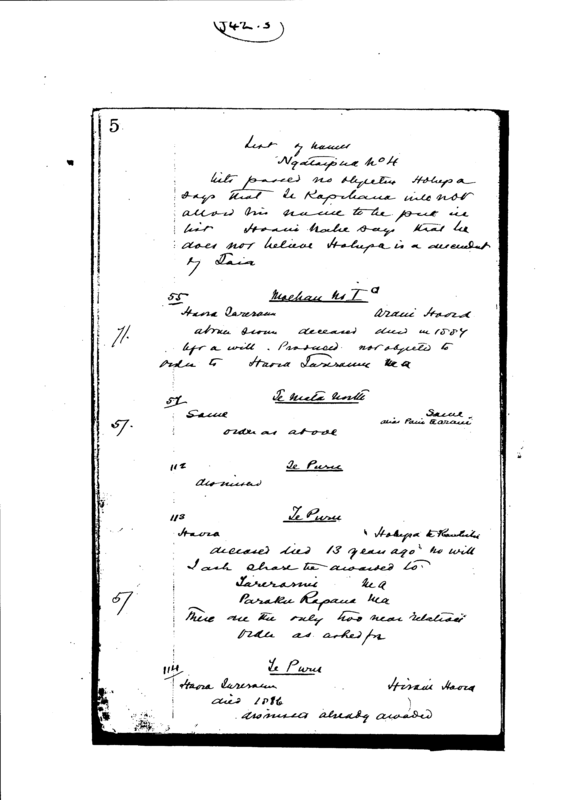 J42.3
5
List of names
Ngataipua No 4
list passed no objection Hohepa
says that Te Kapihana will not
allow his name to be put in
list Hoani Nahe says that he
does not believe Hohepa is a descendant
of Taia
55 Moehau No I a
Haora Tareranui
above sworn deceased died in 1887
71. left a will. Produced not objected to
order to Haora Tareranui M a
57 Te Mata North
Same Same
5/. alias
order as above
112 Te Puru
dismissed
113 Te Puru
Haora Hohepa te
deceased died 13 years ago no will
I ask share be awarded to
Tareranui M a
5/ Paraku Rapana M a
These are the only two near relations
order as asked for
114 Te Puru
Haora Tareranui Haora
died 1886
dismissed already awarded